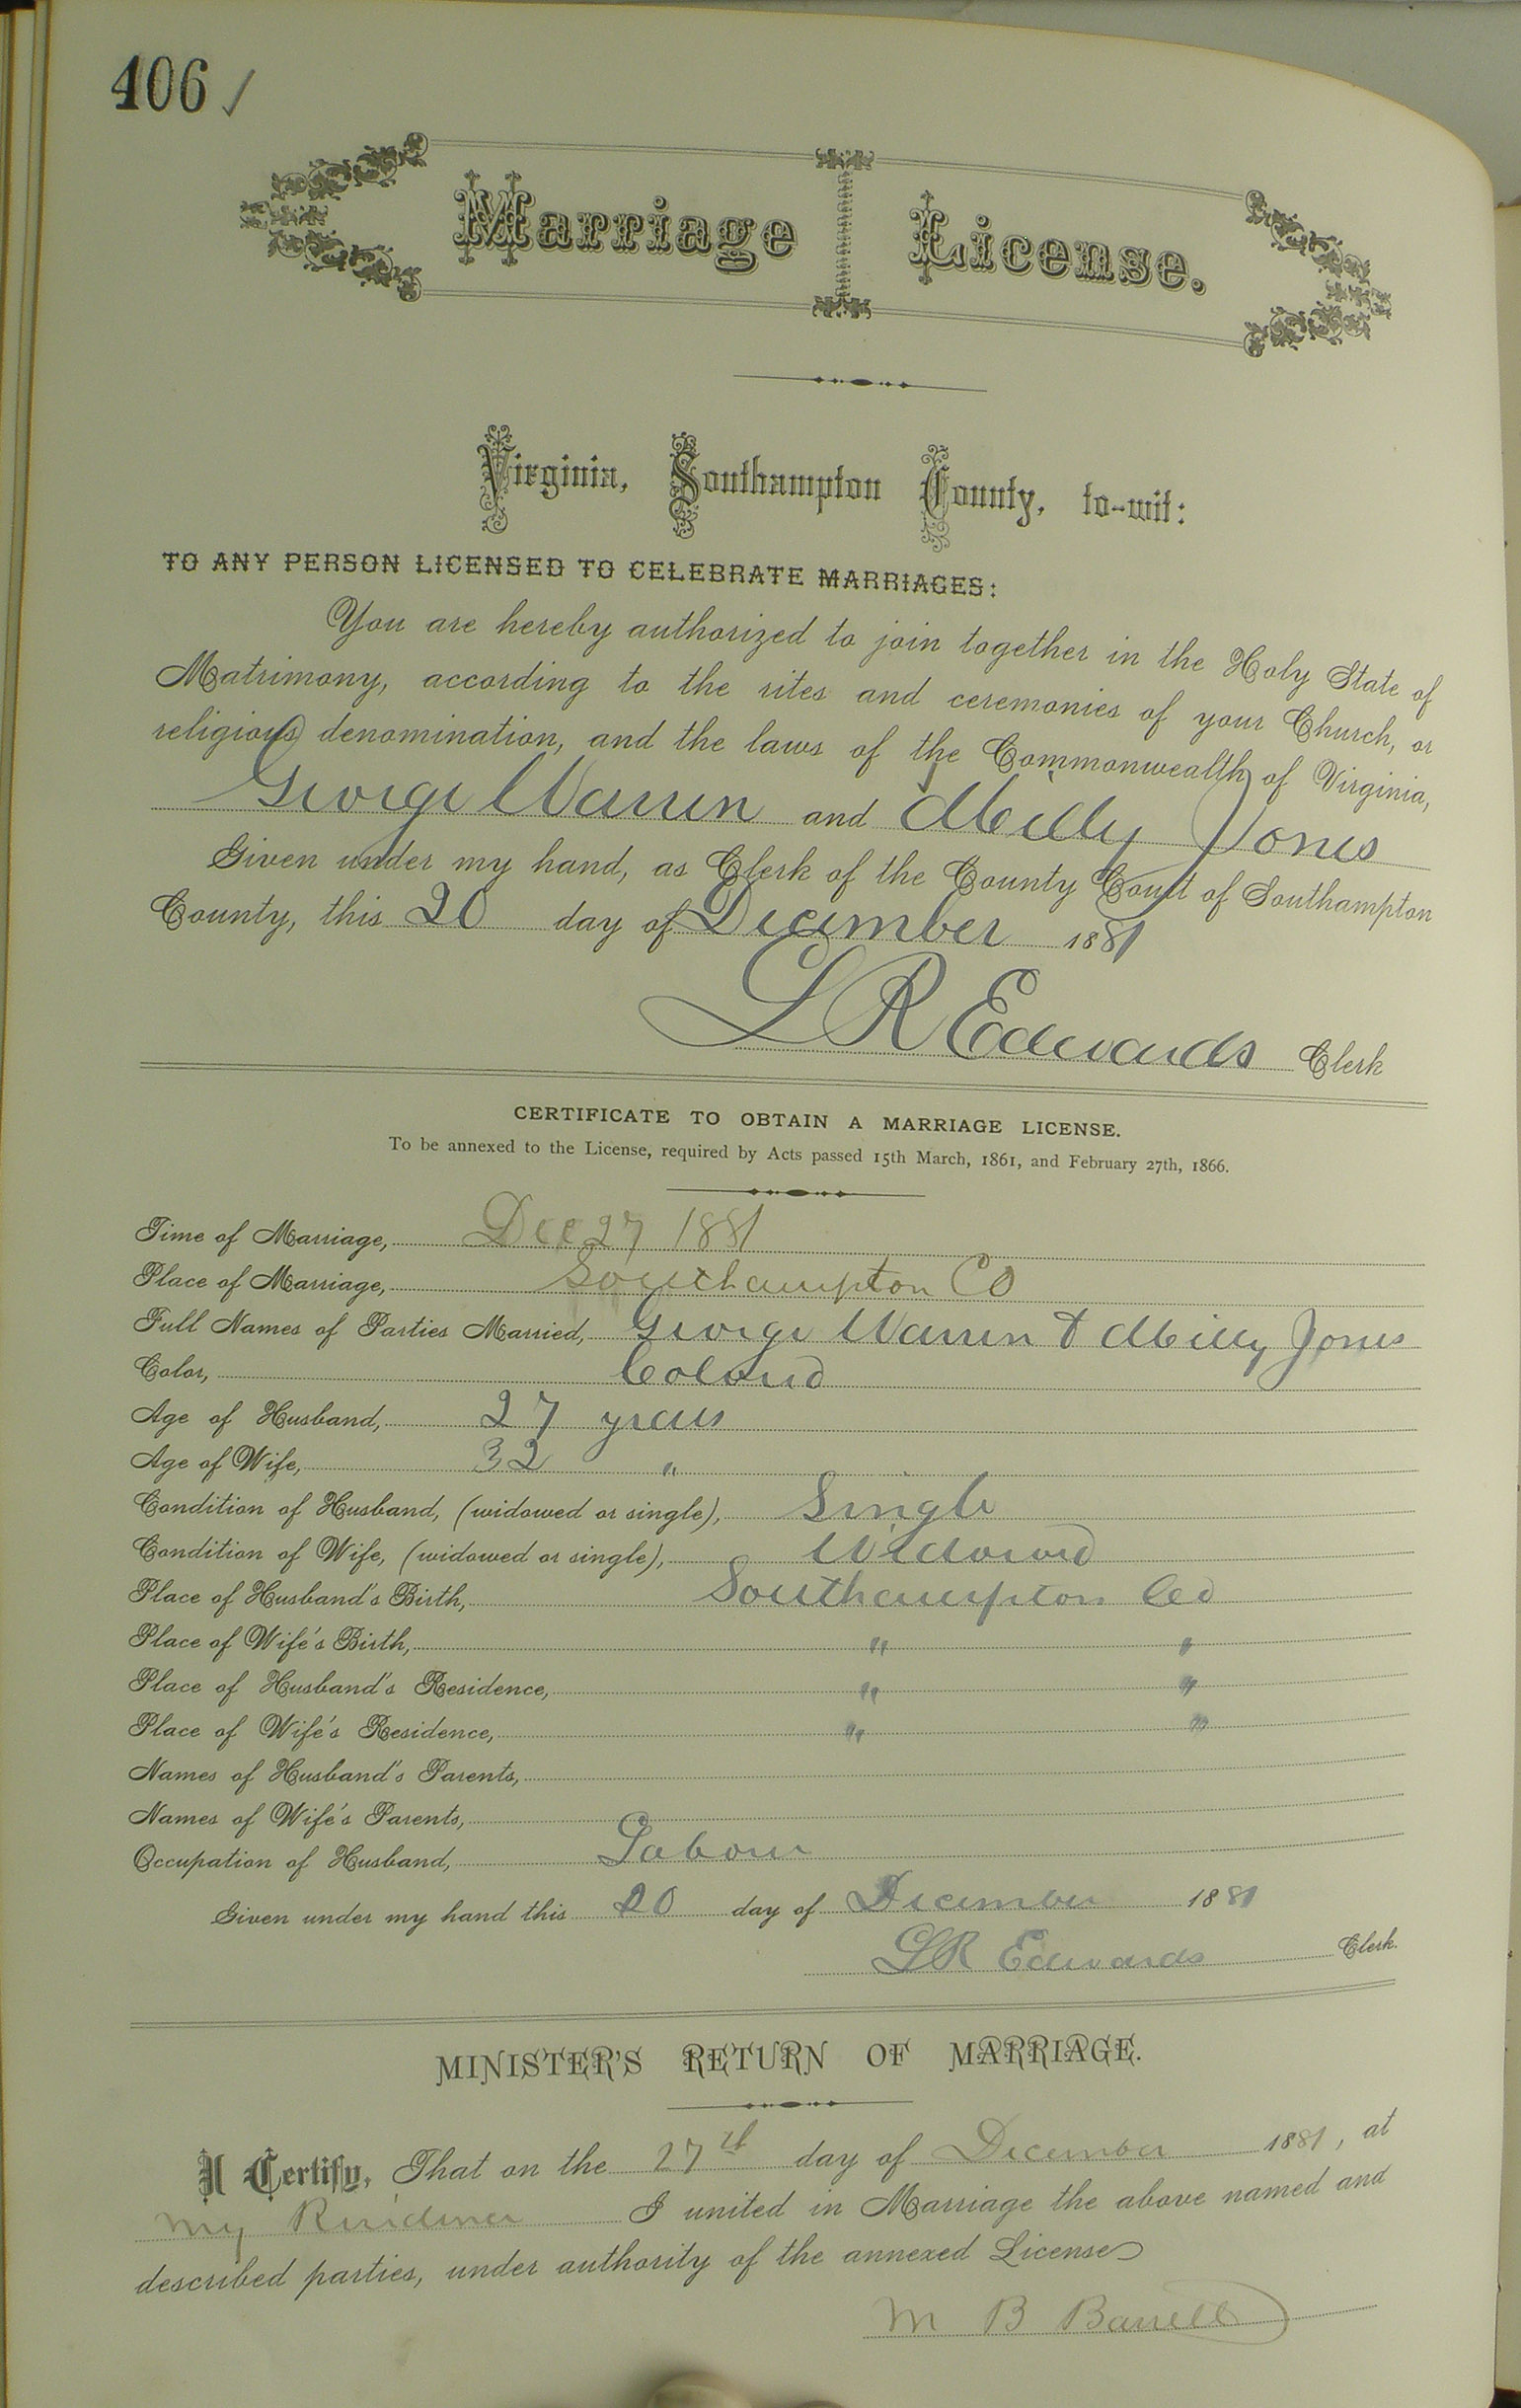 406 ✓
Marriage License.
Virginia, Southampton County, to-wit:
TO ANY PERSON LICENSED TO CELEBRATE MARRIAGES:
You are hereby authorized to join together in the Holy State of
Matrimony, according to the rites and ceremonies of your Church, or
religious denomination, and the laws of the Commonwealth of Virginia,
George Warren and Milly Jones
Given under my hand, as Clerk of the County Court of Southampton
County, this 20 day of December 1881
L R Edwards Clerk
CERTIFICATE TO OBTAIN A MARRIAGE LICENSE.
To be annexed to the License, required by Acts passed 15th March, 1861, and February 27th, 1866.
Time of Marriage, Dec 27 1881
Place of Marriage, Southampton Co
Full Names of Parties Married, George Warren & Milly Jones
Color, Colored
Age of Husband, 27 years
Age of Wife, 32 "
Condition of Husband, (widowed or single), Single
Condition of Wife, (widowed or single), Widowed
Place of Husband's Birth, Southampton Co
Place of Wife's Birth, " "
Place of Husband's Residence, " "
Place of Wife's Residence, " "
Names of Husband's Parents,
Names of Wife's Parents,
Occupation of Husband, Laborer
Given under my hand this 20 day of December 1881
L R Edwards Clerk.
MINISTER'S RETURN OF MARRIAGE.
I Certify, That on the 27th day of December 1881, at
my Residence I united in Marriage the above named and
described parties, under authority of the annexed License
M B Barrett